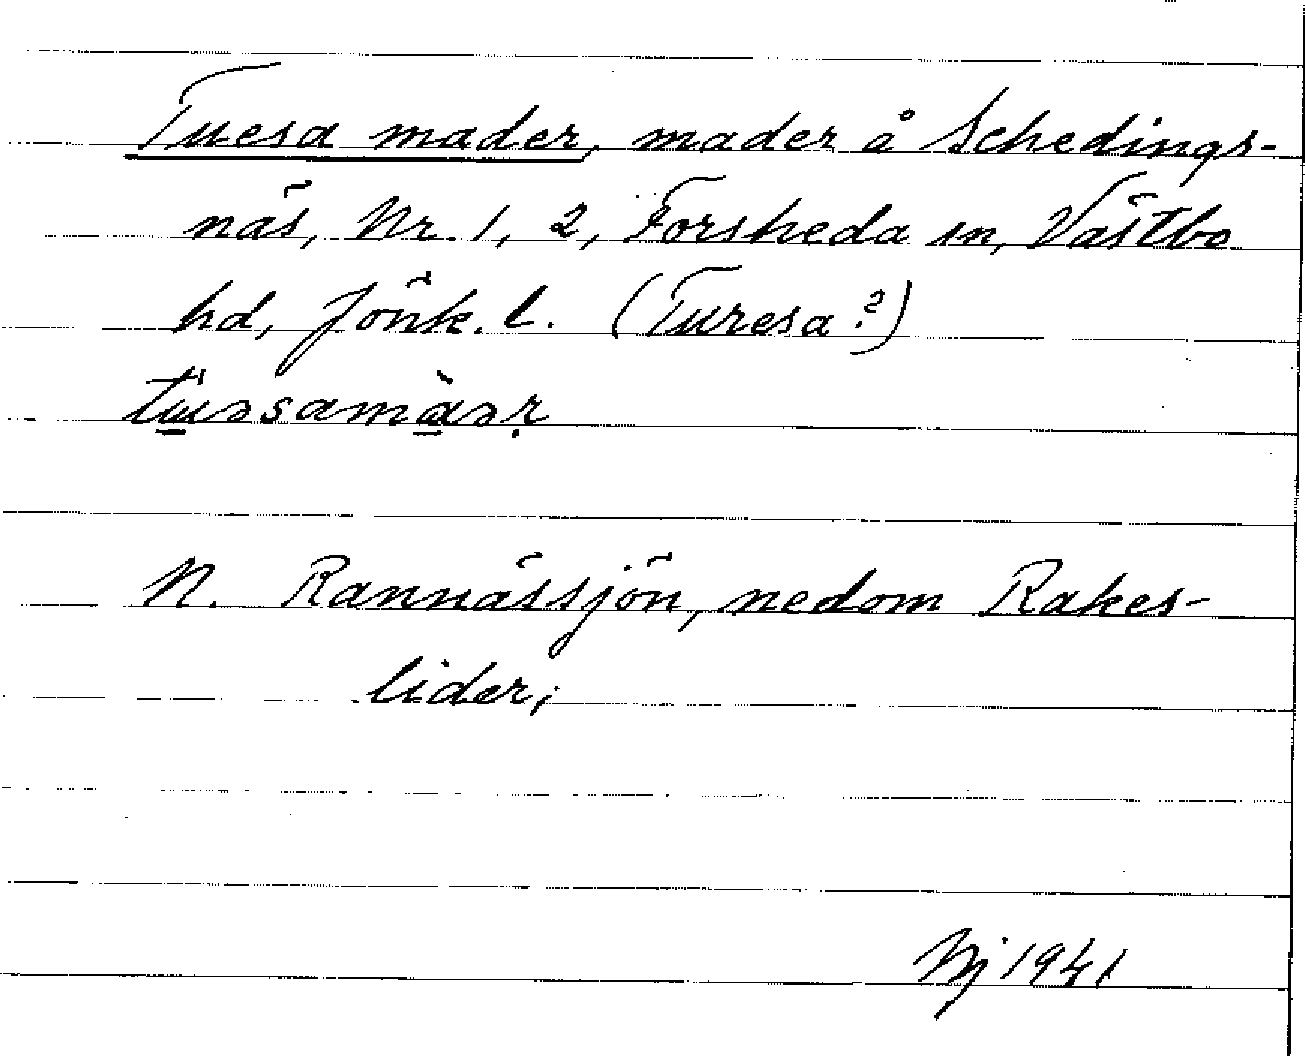 Tuesa mader, mader å Schedings-
näs, Nr 1, 2, Forsheda sn, Västbo
hd, Jönk. l. (Turesa?)
N. Rannässjön, nedom Rakes-
lider;
Nj 1941